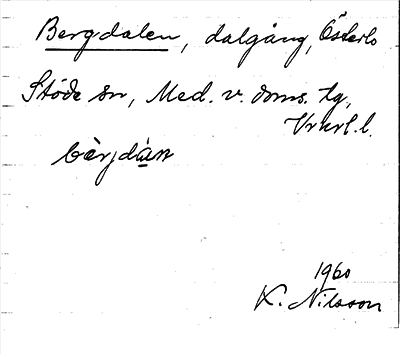 Bergdalen, dalgång, Österlo
Stöde sn, Med. v. doms. tg,
Vrnrl. l.
bèrjdàɷn
1960
K. Nilsson